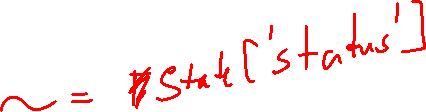 ~ = $State['status']